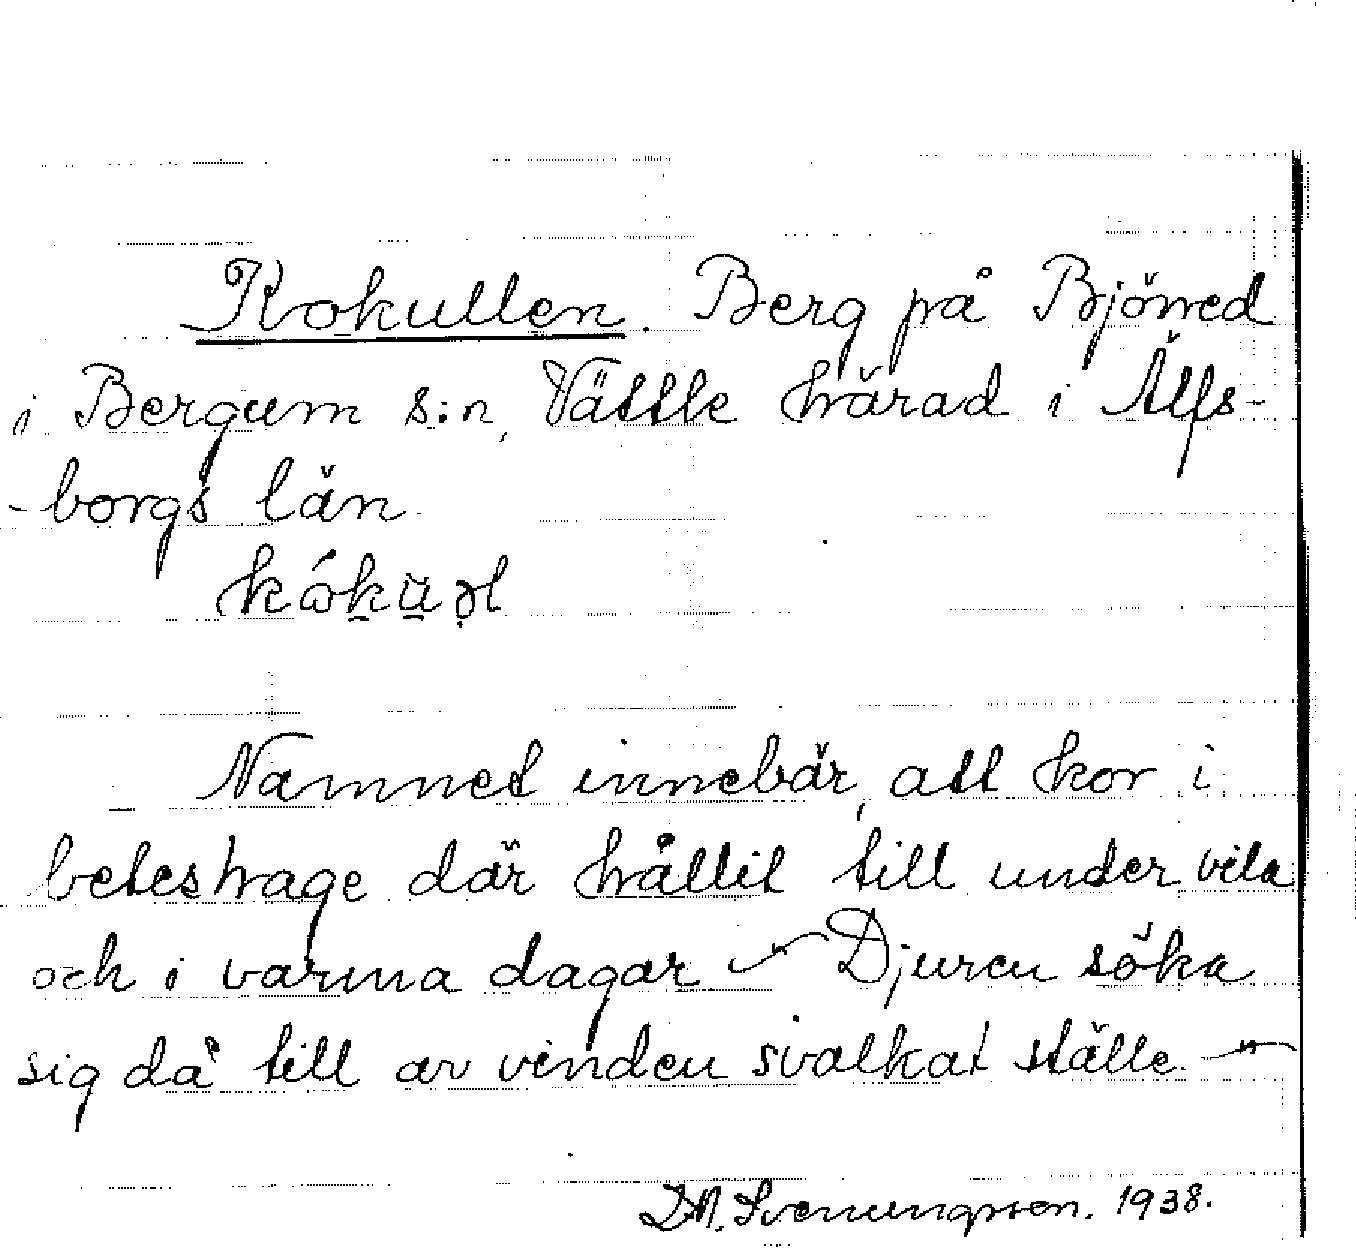 Kokullen. Berg på Björred
i Bergum s:n, Vättle härad i Älfs-
-borgs län
Namnet innebär, att kor i
beteshage där hållit till under vila
och i varma dagar — Djuren söka
sig då till av vinden svalkat ställe. —
Svenungsson. 1938.